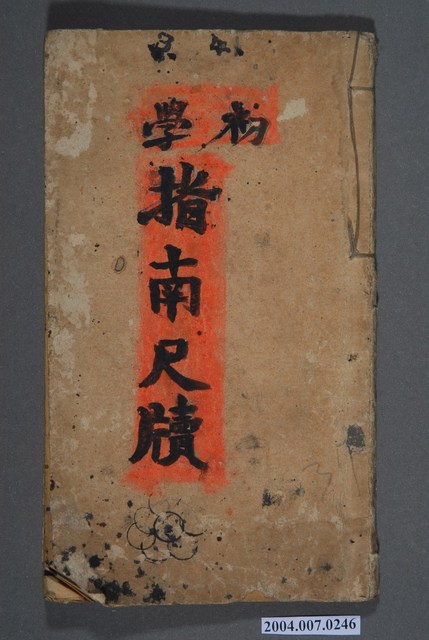 初學
指南尺牘
2004.007.0246